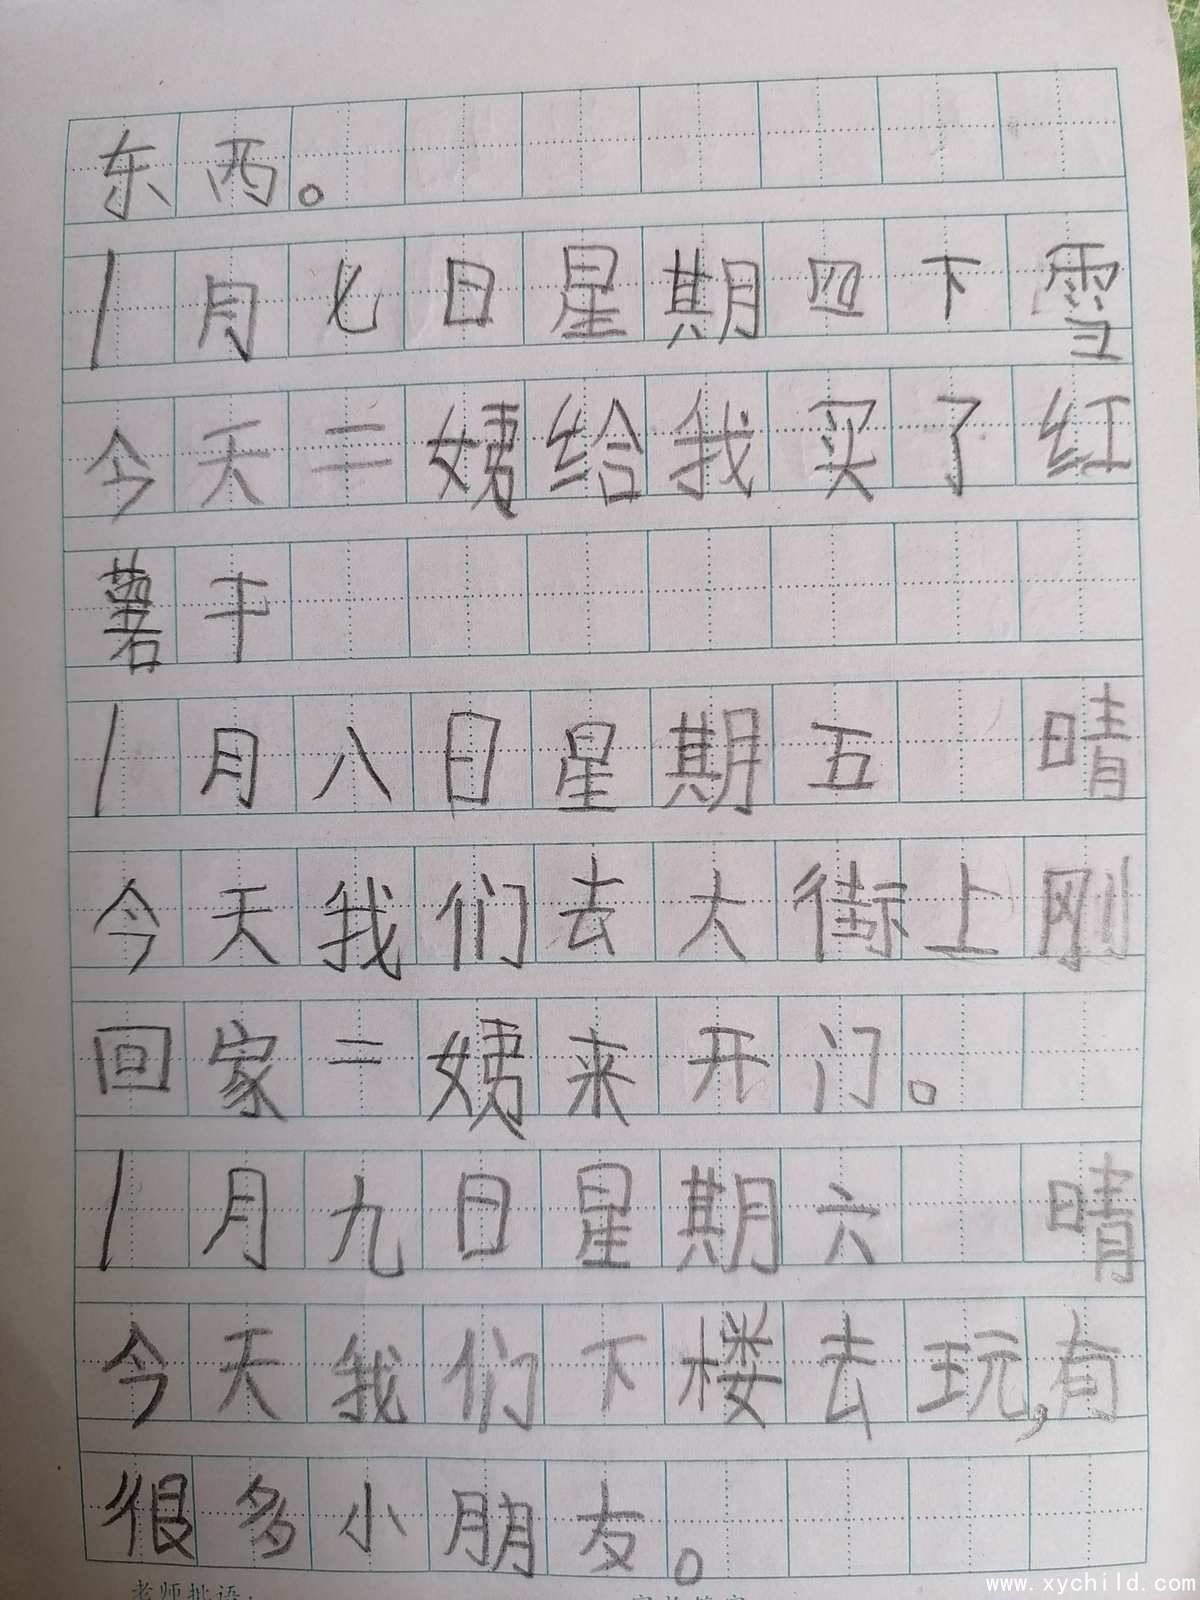 东西。
1月七日星期四下雪
今天二姨给我买了红
薯干
1月八日星期五 晴
今天我们去大街上刚
回家二姨来开门。
1月九日星期六 晴
今天我们下楼去玩,有
很多小朋友。
老师批语:
www.xychild.com